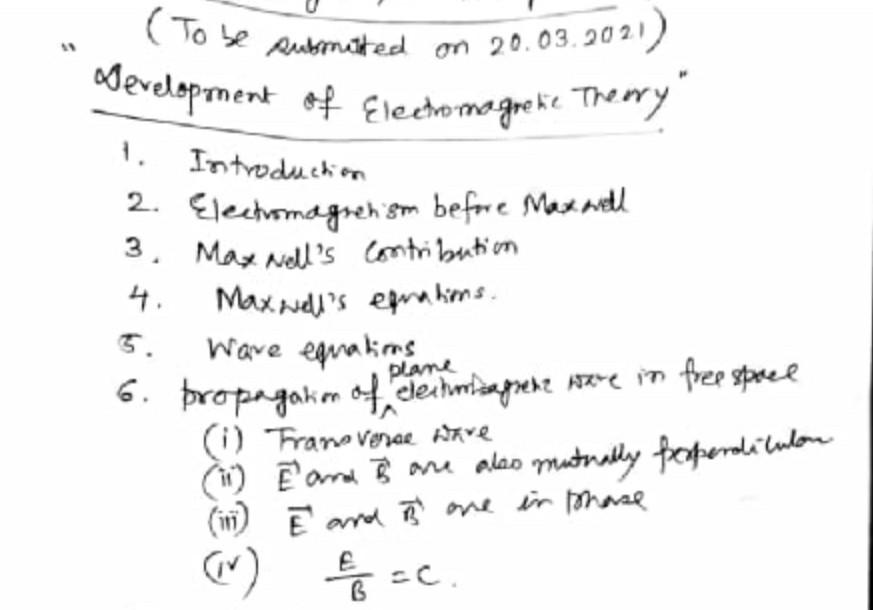 (To be submitted on 20.03.2021)
"Development of Electromagnetic Theory"
1. Introduction
2. Electromagnetism before Maxwell
3. Maxwell's Contribution
4. Maxwell's equations.
5. Wave equations
6. propagation of plane electromagnetic wave in free space
(i) Transverse wave
(ii) E⃗ and B⃗ are also mutually perpendicular
(iii) E⃗ and B⃗ are in phase
(iv) E/B = C.